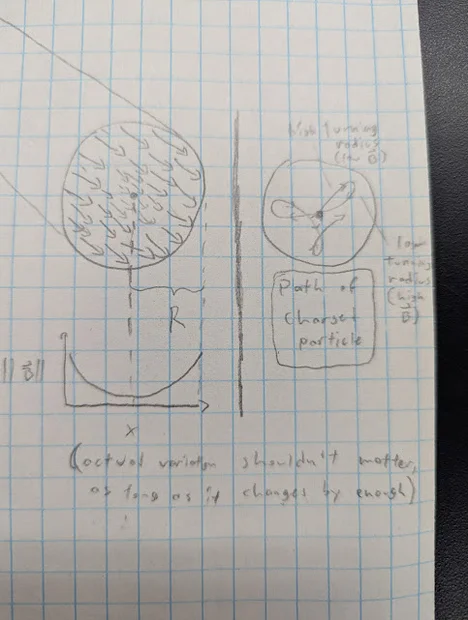 high turning
radius
(low B)
low
turning
radius
(high
B)
Path of
charged
particle
R
|| B ||
x
(actual variation shouldn't matter,
as long as it changes by enough)